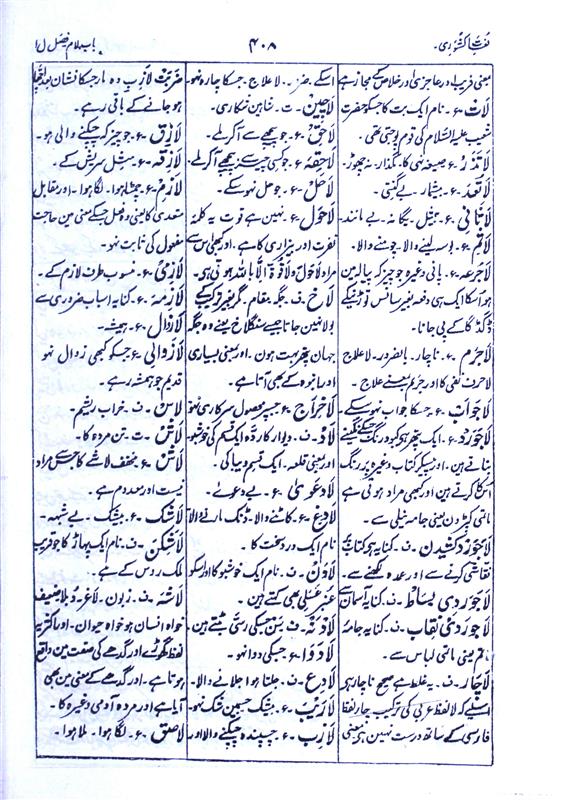 لغات کشوری۔
۴۰۸
باب لام فصل ا
معنی فریب اور عاجزی اور خلاص کے مجاز ہے
لات ۔ ع ۔ نام ایک بت کا جسکو حضرت
شعیب علیہ السلام کی قوم پوجتی تھی۔
لاتذر ۔ ع ۔ صیغہ نہی کا۔ مگذار۔ نہ چھوڑ۔
لاتعد ۔ بیشمار۔ بے گنتی۔
لاثانی ۔ ع ۔ بیمثل۔ یگانہ۔ بے مانند۔
لاثم ۔ ع ۔ بوسہ لینے والا۔ چومنے والا۔
لاجرعہ ۔ ع ۔ پانی وغیرہ جو چیز کہ پیالہ مین
ہو اسکا ایک ہی دفعہ بغیر سانس توڑنیکے
ڈگڈگا کے پی جانا۔
لاجرم ۔ ع ۔ ناچار۔ بالضرور۔ لاعلاج
لا حرف نفی کا اور جرم بمعنے علاج۔
لاجواب ۔ ع ۔ جسکا جواب نہوسکے۔
لاجورد ۔ ع ۔ ایک پتھر ہے کبود رنگ جسکے نگینے
بناتے ہین۔ اور پیسکر کتاب وغیرہ پر رنگ
آمیزی کرتے ہین اور کبھی مراد ہوتی ہے
ماتمی کپڑون یعنی جامہ نیلی سے۔
لاجورد کشیدن ۔ ف ۔ کنایہ ہے کتاب پر
نقاشی کرنے سے اور عمدہ لکھنے سے۔
لاجوردی بساط ۔ ف ۔ کنایہ آسمان سے
لاجوردی نقاب ۔ ف ۔ کنایہ جامہ
ماتم یعنی ماتمی لباس سے۔
لاچار ۔ ف ۔ یہ غلط ہے صحیح ناچار ہے
اسلیے کہ لا لفظ عربی کی ترکیب چار لفظ
فارسی کے ساتھ درست نہین ہے معنی
اسکے۔ لاعلاج۔ جسکا چارہ نہو۔
لاچین ۔ ت ۔ شاہین شکاری۔
لاحق ۔ ع ۔ جو پیچھے سے آکر ملے۔
لاحقہ ۔ ع ۔ جو کسی چیز سے پیچھے آکر ملے
لاحل ۔ جو حل نہوسکے۔
لاحول ۔ ع ۔ نہین ہے قوت یہ کلمہ
نفرت اور بیزاری کا ہے۔ اور کبھی اس سے
مراد لاحول ولا قوة الا باللہ ہوتی ہی۔
لاخ ۔ ف ۔ جگہ مقام۔ مگر بغیر ترکیب کے
بولا نہین جاتا جیسے سنگلاخ یعنے وہ جگہ
جہان پتھر بہت ہون۔ اور بمعنی بسیاری
اور انبوہ کے بھی آتا ہے۔
لاخراج ۔ ع ۔ جسپر محصول سرکاری نہو
لاد ۔ ف ۔ دیوار ایک قسم کی خوشبو
اور بمعنی قلعہ۔ ایک قسم دیبا کی۔
لادعوی ۔ ع ۔ بے دعوے۔
لادغ ۔ ع ۔ کاٹنے والا۔ ڈنک مارنے والا
نام ایک درخت کا۔
لادن ۔ ف ۔ نام ایک خوشبو کا اور اسکو
عنبر عسلی بھی کہتے ہین۔
لادنہ ۔ ف ۔ سن جسکی رسی بٹتے ہین۔
لادوا ۔ ع ۔ جسکی دوا نہو۔
لاذع ۔ ف ۔ جلتا ہوا جلانے والا۔
لاریب ۔ ع ۔ بیشک جسمین شک نہو۔
لازب ۔ ع ۔ چسپندہ چپکنے والا اور
ضربت لازب وہ مار جسکا نشان بعد اچھا
ہو جانے کے باقی رہے۔
لازق ۔ ع ۔ جو چیز کہ چپکنے والی ہو۔
لازقہ ۔ ع ۔ مثل سریش کے۔
لازم ۔ ع ۔ چمٹا ہوا۔ لگا ہوا۔ اور مقابل
متعدی کا یعنی وہ فعل جسکے معنی مین حاجت
مفعول کی ثابت نہو۔
لازمی ۔ ع ۔ منسوب طرف لازم کے۔
لازمہ ۔ ع ۔ کنایہ اسباب ضروری سے
لازوال ۔ ع ۔ ہمیشہ۔
لازوالی ۔ ع ۔ جسکو کبھی زوال نہو
قدیم جو ہمیشہ رہے۔
لاس ۔ ف ۔ خراب ریشم۔
لاش ۔ ت ۔ تن مردہ کا۔
لاش ۔ ع ۔ مخفف لاشے کا جس سے مراد
نیست اور معدوم ہے۔
لاشک ۔ ع ۔ بیشک۔ بے شبہہ۔
لاشکن ۔ ف ۔ نام ایک پہاڑ کا جو قریب
ملک روس کے ہے۔
لاشہ ۔ ف ۔ زبون۔ لاغر و دبلا ضعیف
خواہ انسان ہو خواہ حیوان۔ اور اکثر یہ
لفظ گھوڑے اور گدھے کی صفت مین واقع
ہوتا ہے۔ اور گدھے کے معنی مین بھی
آیا ہے اور مردہ آدمی وغیرہ کا۔
لاصق ۔ ع ۔ لگا ہوا۔ ملا ہوا۔